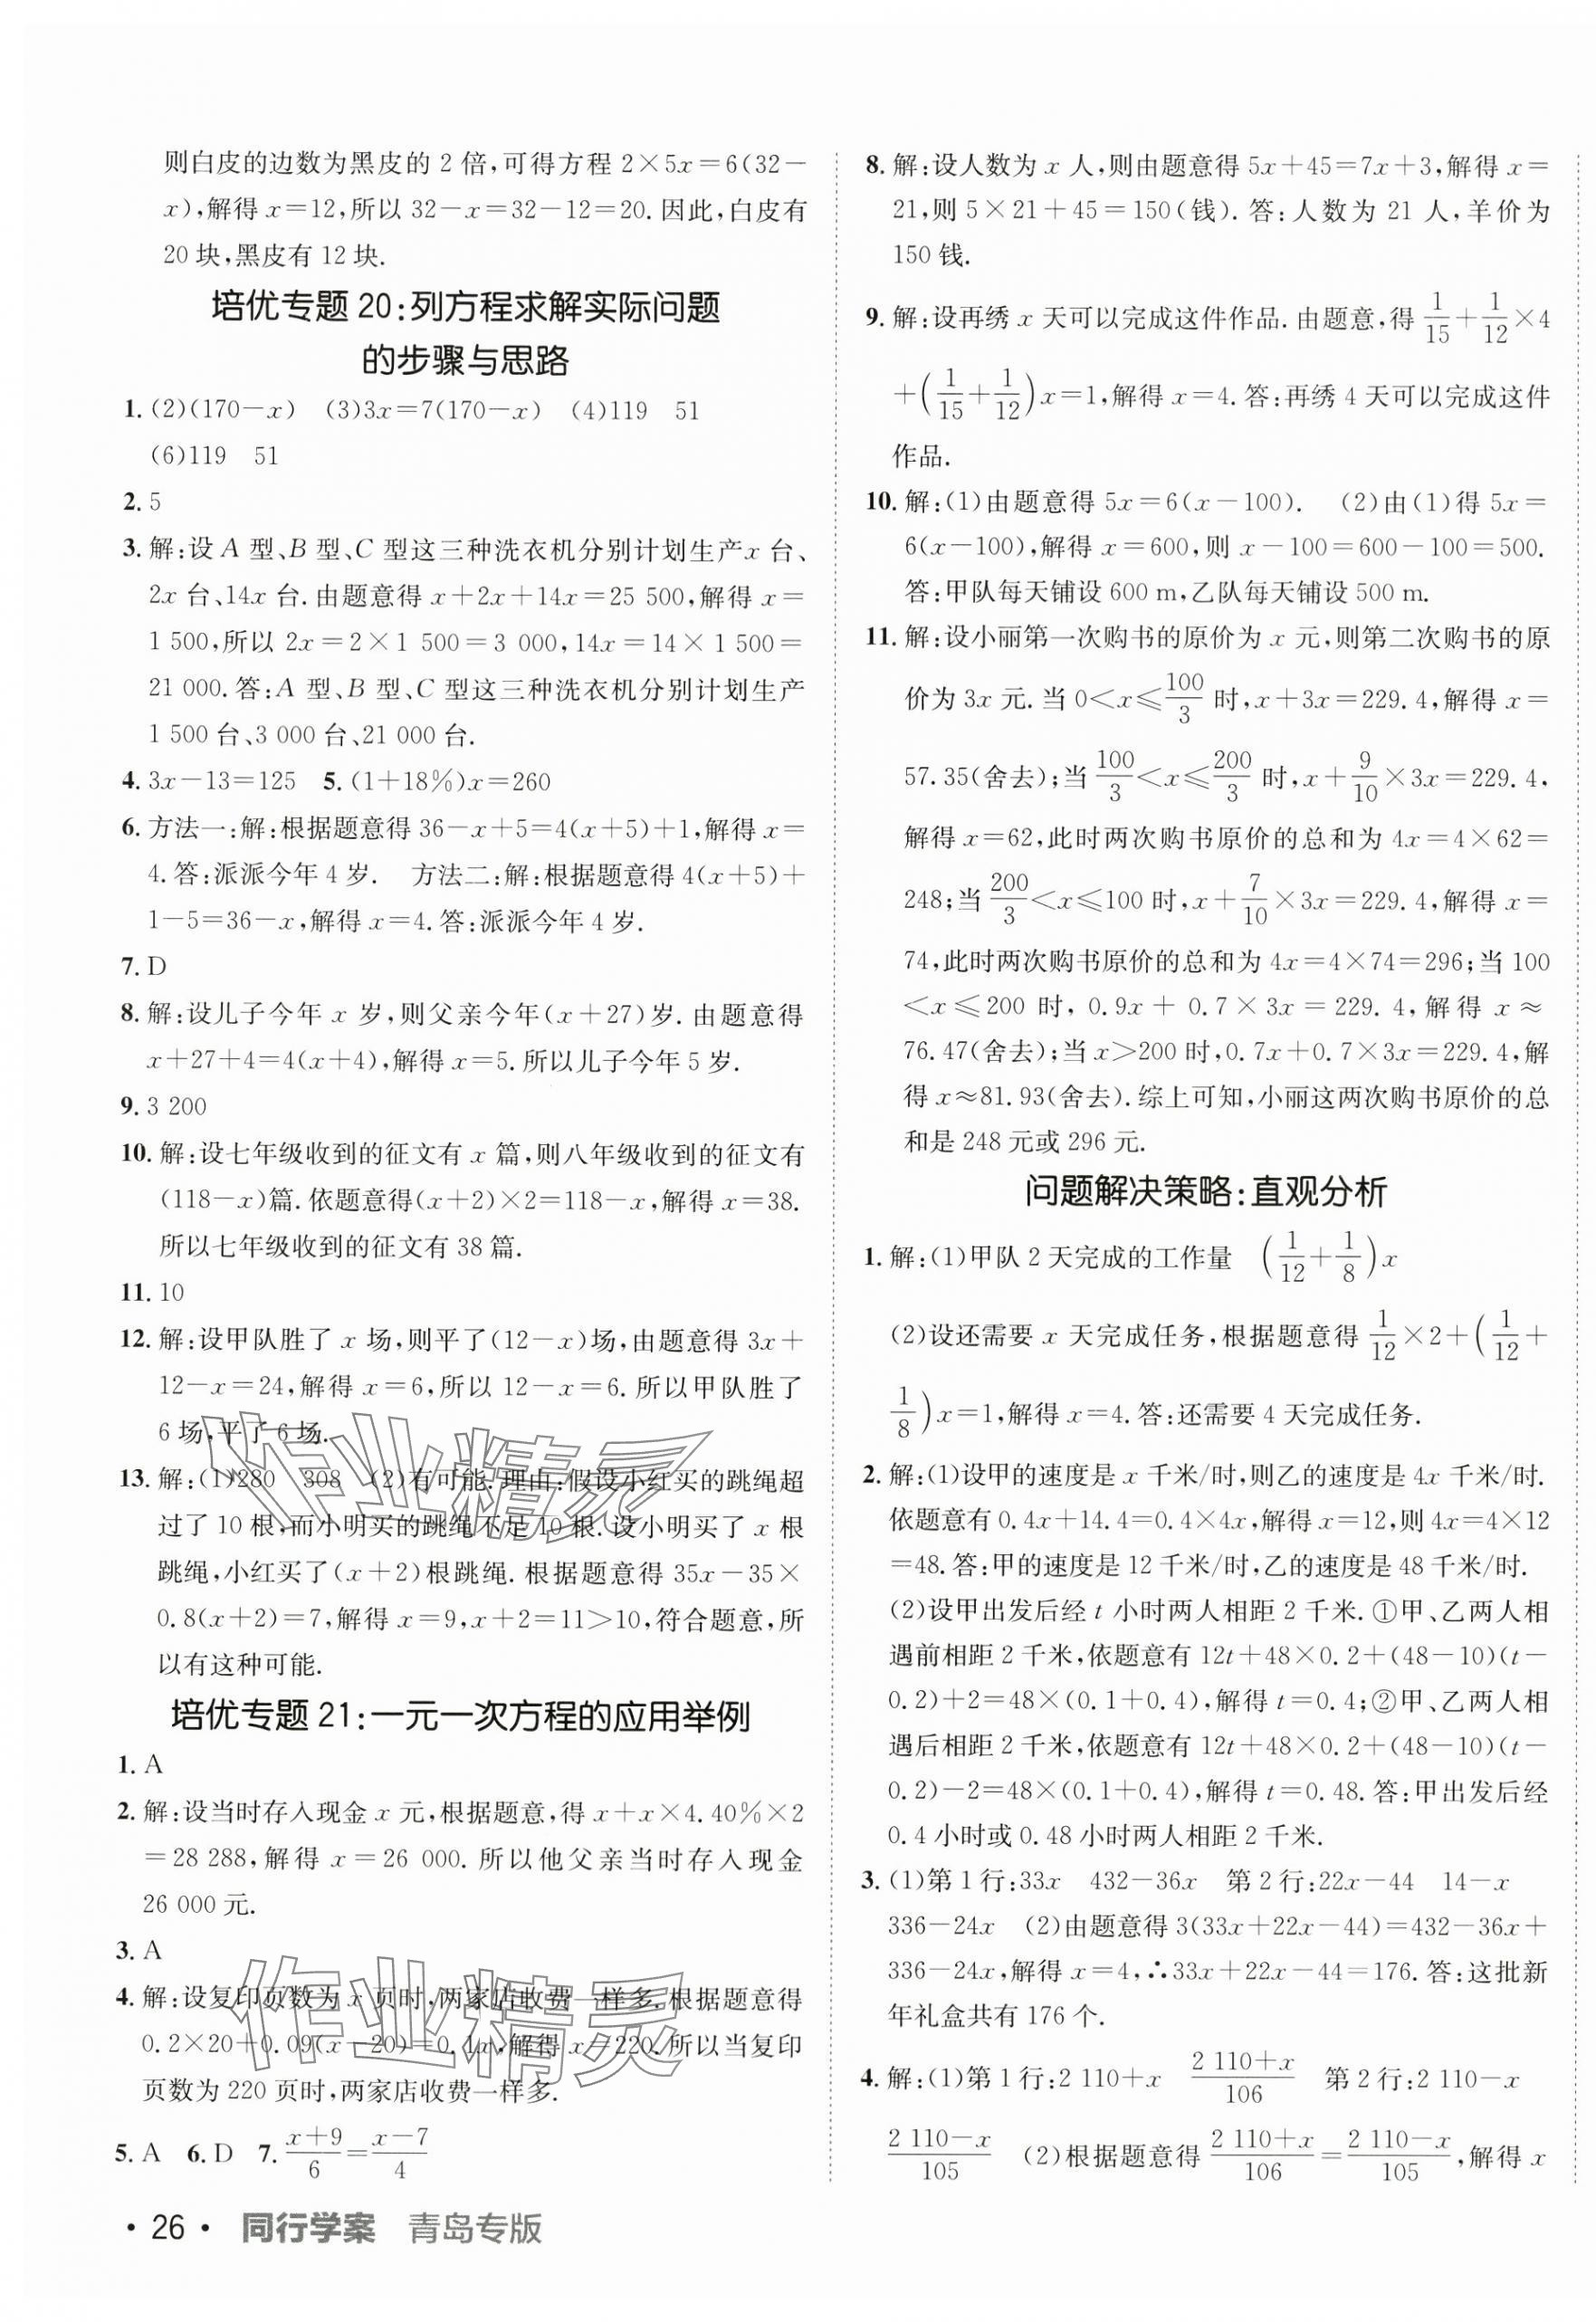 则白皮的边数为黑皮的 2 倍,可得方程 2×5x=6(32-
x),解得 x=12,所以 32-x=32-12=20. 因此,白皮有
20 块,黑皮有 12 块.
培优专题 20:列方程求解实际问题
的步骤与思路
1. (2)(170-x) (3)3x=7(170-x) (4)119 51
(6)119 51
2. 5
3. 解:设 A 型、B 型、C 型这三种洗衣机分别计划生产 x 台、
2x 台、14x 台. 由题意得 x+2x+14x=25 500,解得 x=
1 500,所以 2x=2×1 500=3 000,14x=14×1 500=
21 000. 答:A 型、B 型、C 型这三种洗衣机分别计划生产
1 500 台、3 000 台、21 000 台.
4. 3x-13=125 5. (1+18%)x=260
6. 方法一:解:根据题意得 36-x+5=4(x+5)+1,解得 x=
4. 答:派派今年 4 岁. 方法二:解:根据题意得 4(x+5)+
1-5=36-x,解得 x=4. 答:派派今年 4 岁.
7. D
8. 解:设儿子今年 x 岁,则父亲今年(x+27)岁. 由题意得
x+27+4=4(x+4),解得 x=5. 所以儿子今年 5 岁.
9. 3 200
10. 解:设七年级收到的征文有 x 篇,则八年级收到的征文有
(118-x)篇. 依题意得(x+2)×2=118-x,解得 x=38.
所以七年级收到的征文有 38 篇.
11. 10
12. 解:设甲队胜了 x 场,则平了(12-x)场,由题意得 3x+
12-x=24,解得 x=6,所以 12-x=6. 所以甲队胜了
6 场,平了 6 场.
13. 解:(1)280 308 (2)有可能. 理由:假设小红买的跳绳超
过了 10 根,而小明买的跳绳不足 10 根. 设小明买了 x 根
跳绳,小红买了(x+2)根跳绳. 根据题意得 35x-35×
0.8(x+2)=7,解得 x=9,x+2=11>10,符合题意,所
以有这种可能.
培优专题 21:一元一次方程的应用举例
1. A
2. 解:设当时存入现金 x 元,根据题意,得 x+x×4.40%×2
=28 288,解得 x=26 000. 所以他父亲当时存入现金
26 000 元.
3. A
4. 解:设复印页数为 x 页时,两家店收费一样多. 根据题意得
0.2×20+0.09(x-20)=0.1x,解得 x=220. 所以当复印
页数为 220 页时,两家店收费一样多.
5. A 6. D 7. (x+9)/6=(x-7)/4
· 26 · 同行学案 青岛专版
8. 解:设人数为 x 人,则由题意得 5x+45=7x+3,解得 x=
21,则 5×21+45=150(钱). 答:人数为 21 人,羊价为
150 钱.
9. 解:设再绣 x 天可以完成这件作品. 由题意,得 1/15+1/12×4
+(1/15+1/12)x=1,解得 x=4. 答:再绣 4 天可以完成这件
作品.
10. 解:(1)由题意得 5x=6(x-100). (2)由(1)得 5x=
6(x-100),解得 x=600,则 x-100=600-100=500.
答:甲队每天铺设 600 m,乙队每天铺设 500 m.
11. 解:设小丽第一次购书的原价为 x 元,则第二次购书的原
价为 3x 元. 当 0<x≤100/3 时,x+3x=229.4,解得 x=
57.35(舍去);当 100/3<x≤200/3 时,x+9/10×3x=229.4,
解得 x=62,此时两次购书原价的总和为 4x=4×62=
248;当 200/3<x≤100 时,x+7/10×3x=229.4,解得 x=
74,此时两次购书原价的总和为 4x=4×74=296;当 100
<x≤200 时, 0.9x+0.7×3x=229.4,解得 x≈
76.47(舍去);当 x>200 时,0.7x+0.7×3x=229.4,解
得 x≈81.93(舍去). 综上可知,小丽这两次购书原价的总
和是 248 元或 296 元.
问题解决策略:直观分析
1. 解:(1)甲队 2 天完成的工作量 (1/12+1/8)x
(2)设还需要 x 天完成任务,根据题意得 1/12×2+(1/12+
1/8)x=1,解得 x=4. 答:还需要 4 天完成任务.
2. 解:(1)设甲的速度是 x 千米/时,则乙的速度是 4x 千米/时.
依题意有 0.4x+14.4=0.4×4x,解得 x=12,则 4x=4×12
=48. 答:甲的速度是 12 千米/时,乙的速度是 48 千米/时.
(2)设甲出发后经 t 小时两人相距 2 千米. ①甲、乙两人相
遇前相距 2 千米,依题意有 12t+48×0.2+(48-10)(t-
0.2)+2=48×(0.1+0.4),解得 t=0.4;②甲、乙两人相
遇后相距 2 千米,依题意有 12t+48×0.2+(48-10)(t-
0.2)-2=48×(0.1+0.4),解得 t=0.48. 答:甲出发后经
0.4 小时或 0.48 小时两人相距 2 千米.
3. (1)第 1 行:33x 432-36x 第 2 行:22x-44 14-x
336-24x (2)由题意得 3(33x+22x-44)=432-36x+
336-24x,解得 x=4,∴33x+22x-44=176. 答:这批新
年礼盒共有 176 个.
4. 解:(1)第 1 行:2 110+x (2 110+x)/106 第 2 行:2 110-x
(2 110-x)/105 (2)根据题意得 (2 110+x)/106=(2 110-x)/105,解得 x
作业精灵
作业精灵